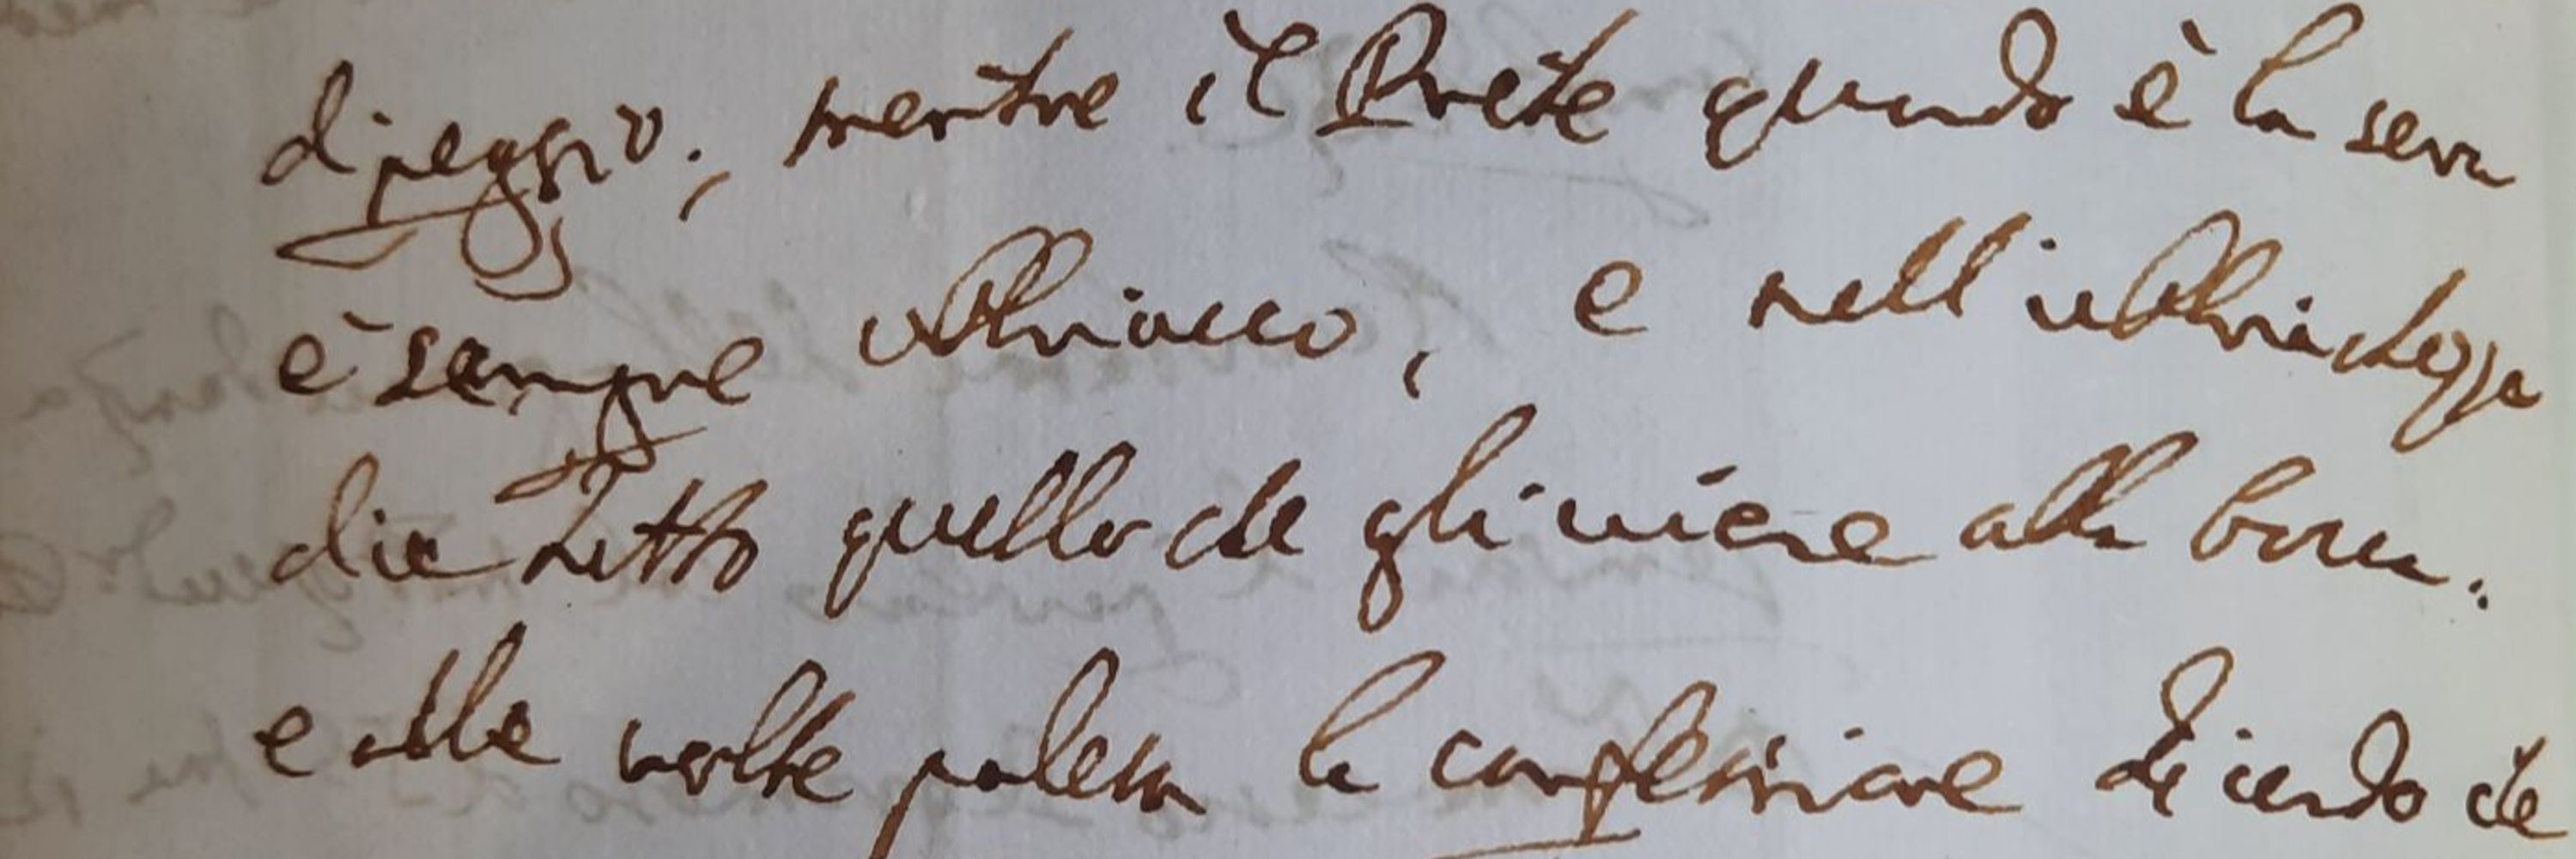 di peggio; mentre il Prete quando è la sera
è sempre ubbriacco, e nell'ubbriachezza
dice tutto quello che gli viene alla bocca.
e alle volte palesa la confessione dicendo che